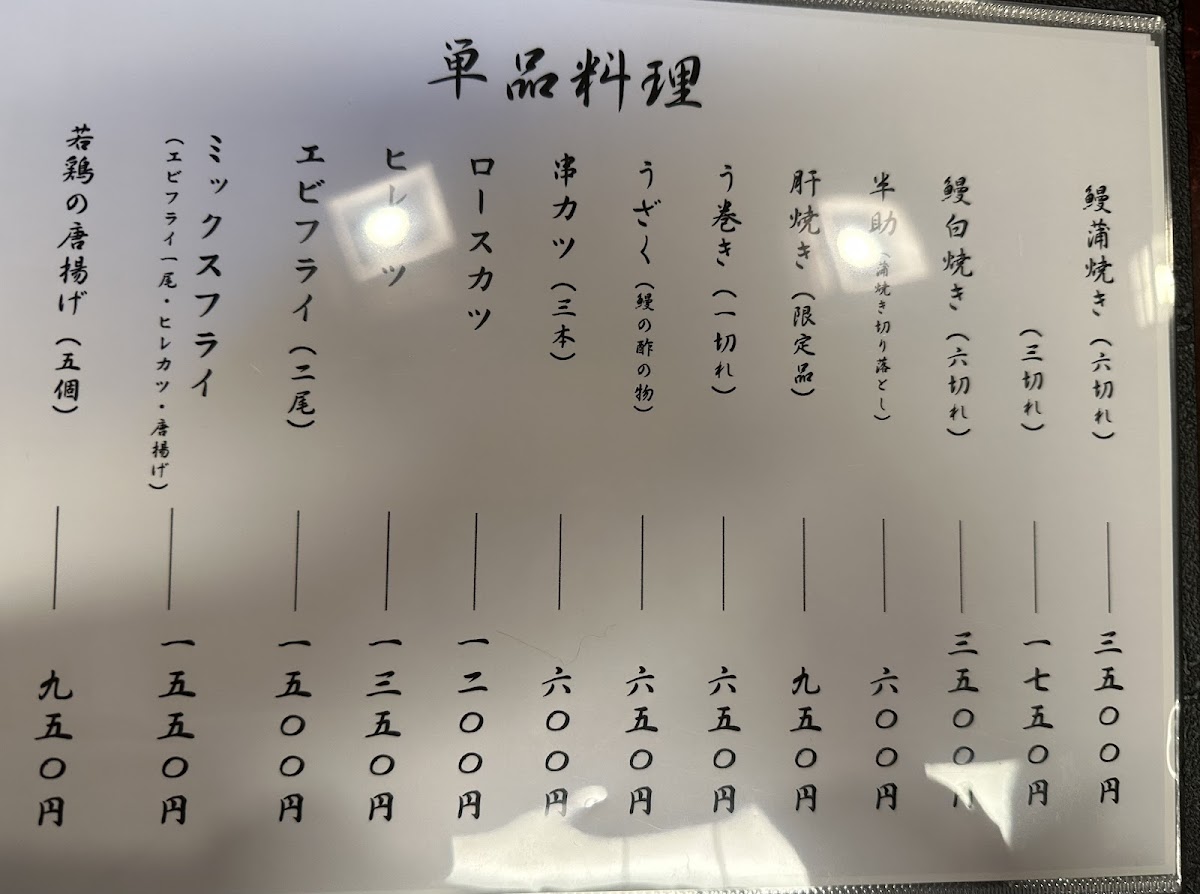 単品料理
鰻蒲焼き（六切れ） 三五〇〇円
（三切れ） 一七五〇円
鰻白焼き（六切れ） 三五〇〇円
半助（蒲焼き切り落とし） 六〇〇円
肝焼き（限定品） 九五〇円
う巻き（一切れ） 六五〇円
うざく（鰻の酢の物） 六五〇円
串カツ（三本） 六〇〇円
ロースカツ 一二〇〇円
ヒレカツ 一三五〇円
エビフライ（二尾） 一五〇〇円
ミックスフライ
（エビフライ一尾・ヒレカツ・唐揚げ） 一五五〇円
若鶏の唐揚げ（五個） 九五〇円